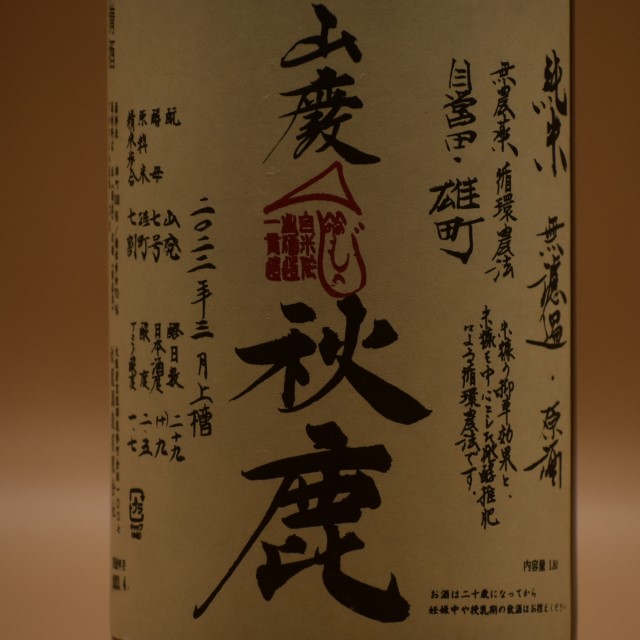 純米 無濾過・原酒
無農薬 循環農法
米糠の抑草効果と、
米糠を中心とした醗酵堆肥
による循環農法です。
自営田・雄町
山廃
秋鹿
二〇二二年三月上槽
酛 山廃
酵母 七号
原料米 雄町
精米歩合 七割
醪日数 二十九
日本酒度 (+)九
酸度 二・五
アミノ酸度 一・七
内容量 1.8ℓ
お酒は二十歳になってから
妊娠中や授乳期の飲酒はお控えください